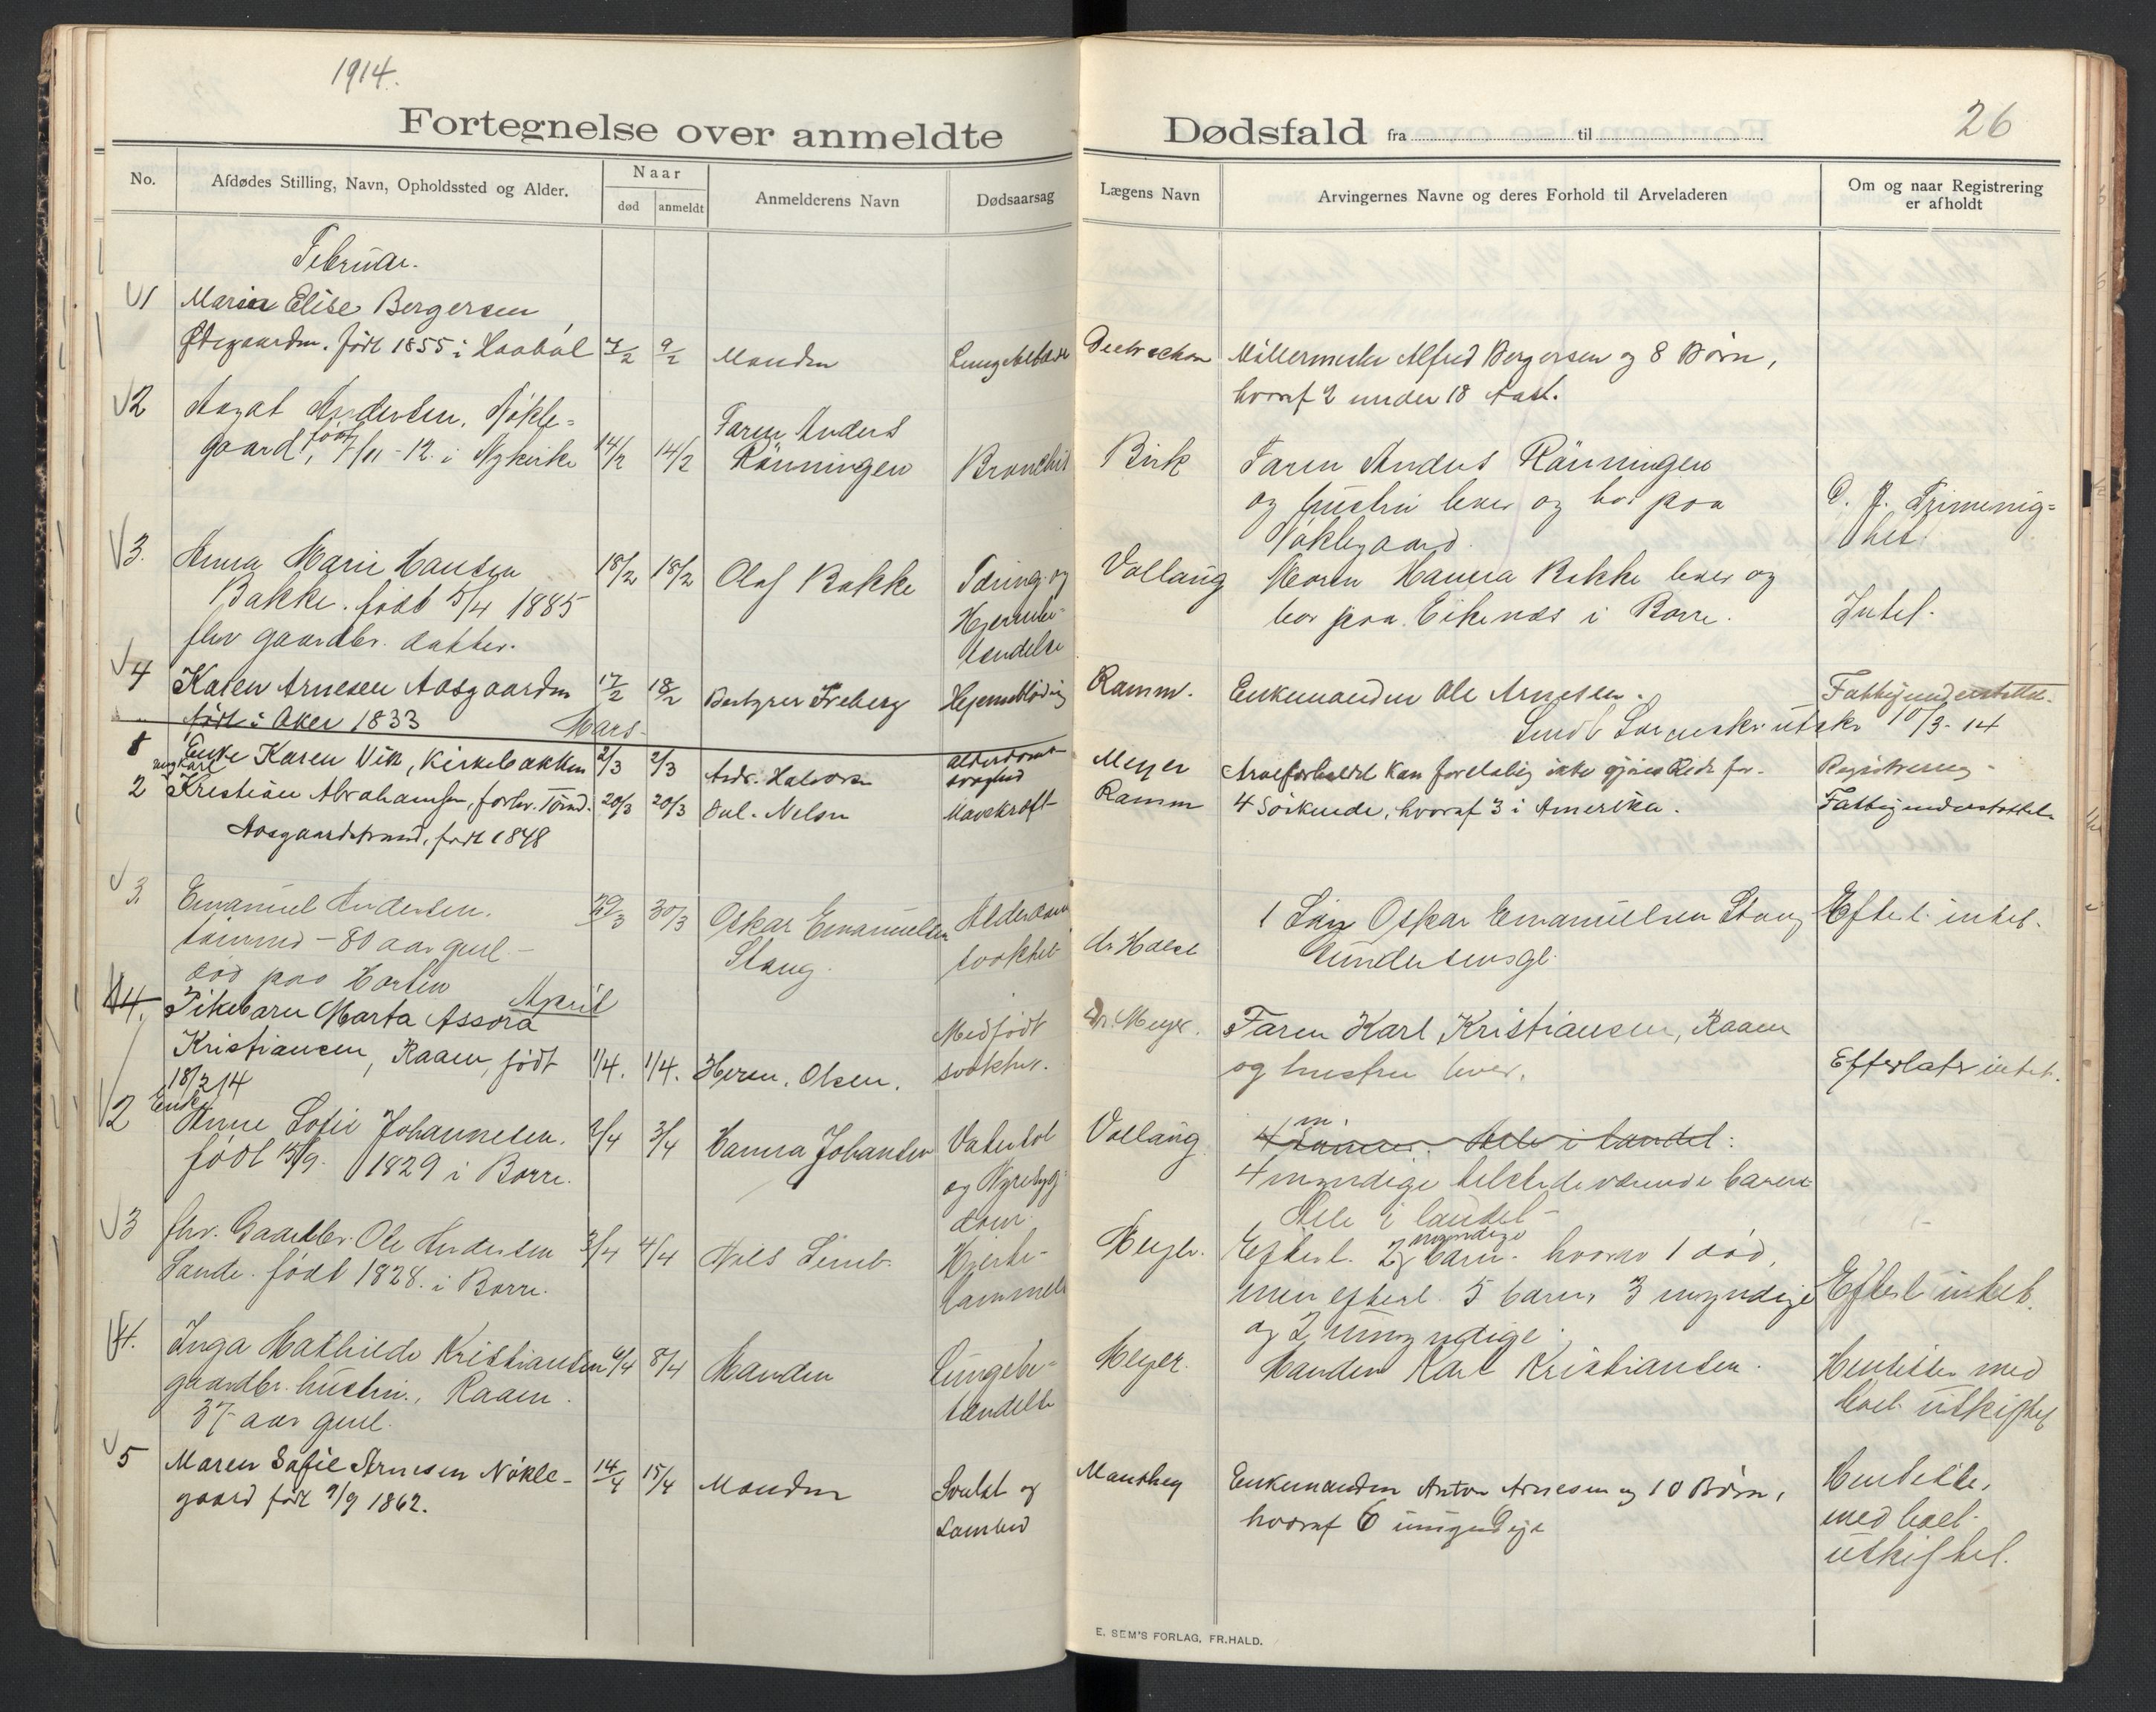 1914.
Fortegnelse over anmeldte
No.
Afdødes Stilling, Navn, Opholdssted og Alder.
Naar
død
anmeldt
Anmelderens Navn
Dødsaarsag
Februar.
1 Maria Elise Bergersen
Ødegaarden. født 1855 i Haabøl 7/2 9/2 Manden
2 August Andersen, Nøkle-
gaard, født 7/11-12 i Nykirke 14/2 14/2 Faren Anders
Rånningen Bronchit
3. Anna Marie Hansen 18/2 18/2 Olaf Bakke Tæring og
Bakke. født 5/4 1885 Hjernebe-
fhv gaardbr. datter. tændelse
4 Karen Arnesen Aasgaarden 17/2 18/2 Bestyrer Freberg Hjerneblødning
født i Aker 1833 Mars
1 Enke Karen Vik, Kirkebakken 2/3 2/3 Andr. Halvorsen Alderdoms-
svaghed
ungkarl
2 Kristian Abrahamsen, forhv. Tømd. 20/3 20/3 Jul. Nelsen Mavekræft
Aasgaardstrand, født 1848
3. Emanuel Andersen. 29/3 30/3 Oskar Emanuelsen Alderdoms
tømmd - 80 aar gml - Stang. svakhet
død paa Horten
April
4. Pikebarn Marta Assora Medfødt
Kristiansen, Raaen, født 1/4. 1/4. Herm. Olsen. svakhet.
18/3 14
2 Enke Anne Sofie Johannesen. 2/4 3/4 Hanna Johansen Vatersot
født 15/9. 1829 i Borre. og Nyresyg-
dom
3 fhv. Gaardbr. Ole Andersen 3/4 4/4 Nils Simb. Hjerte-
Sande. født 1828. i Borre. lammels
4. Inga Mathilde Kristiansen 6/4 8/4 Manden Lungebe-
gaardbr. hustru., Raaen. tændelse
37 aar gml.
5 Maren Sofie Arnesen Nøkle- 14/4 15/4 Manden Svulst og
gaard født 9/9 1862.
Dødsfald fra til
26
Lægens Navn
Arvingernes Navne og deres Forhold til Arveladeren
Om og naar Registrering
er afholdt
Møllermester Alfred Bergersen og 8 Børn,
hvoraf 2 under 18 Aar.
Birk Faren Anders Rånningen
og hustru lever og bor paa
Nøklegaard.
Vollaug Moren Hanna Bakke lever og
bor paa Eikenæs i Borre. Intet.
Ramm. Enkemanden Ole Arnesen. Fattigunderstøttet.
Sendt Sorenskr. utskr 10/3-14
Meyer Arveforholdet kan foreløbig ikke gjøres Rede for. Registrering.
Ramm 4 Søskende, hvoraf 3 i Amerika. Fattigunderstøttet.
1 Søn Oskar Emanuelsen Stang Efterl. intet.
dr Holst
Dr. Meyer. Faren Karl Kristiansen, Raaen
og hustru lever. Efterlater intet.
Vollaug 4 Sønner. Alle i landet.
4 myndige tilstedeværende barn
Alle i landet -
Meyer. Efterl. 2 myndige barn. hvorav 1 død,
men efterl. 5 barn, 3 myndige Efterl intet.
og 2 umyndige.
Meyer. Manden Karl Kristiansen. Hensitter med
boet uskiftet
Enkemanden Anton Arnesen og 10 Børn, Hensitte,
hvoraf 6 umyndige med boet
uskiftet.
E. SEM'S FORLAG, FR.HALD.